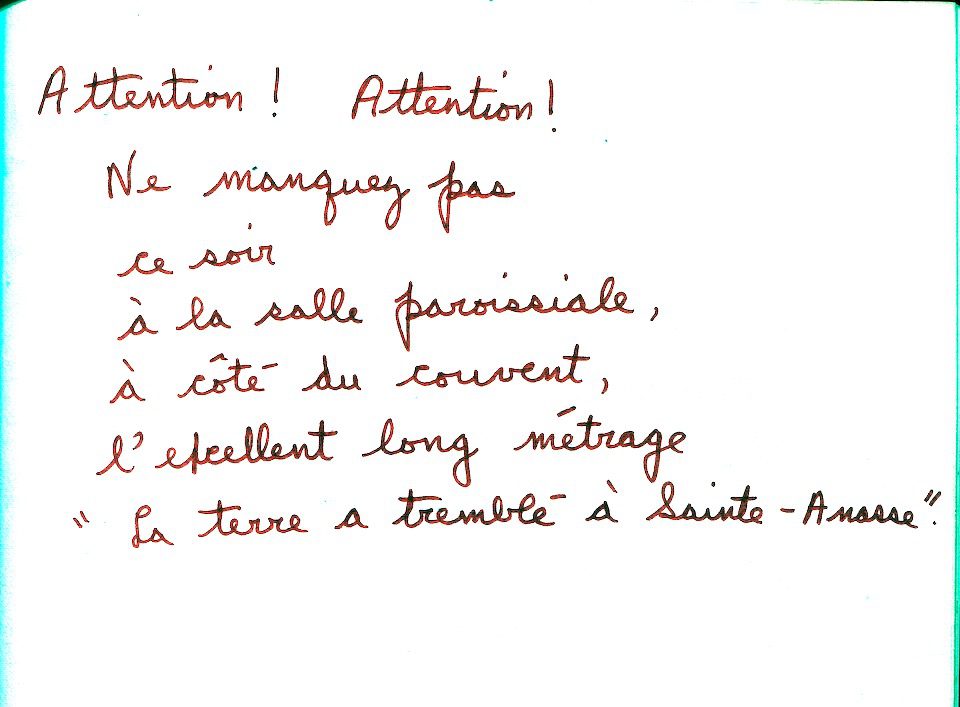 Attention ! Attention !
Ne manquez pas
ce soir
à la salle paroissiale,
à côté du couvent,
l'excellent long métrage
"La terre a tremblé à Sainte-Anasse".